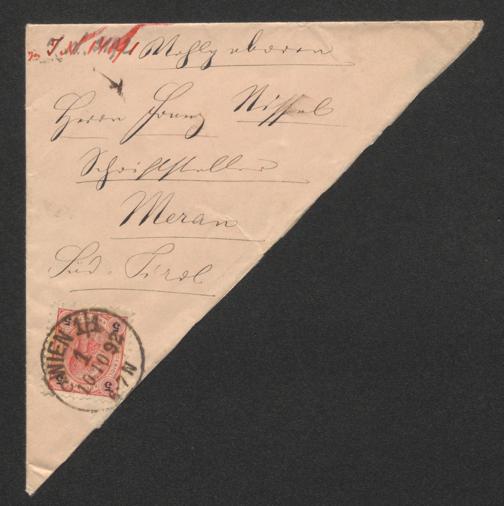 Wohlgeboren
Herrn Franz Nissel
Schriftsteller
Meran
Süd-Tirol
WIEN 1/1
1
10.10.92
5
5
5